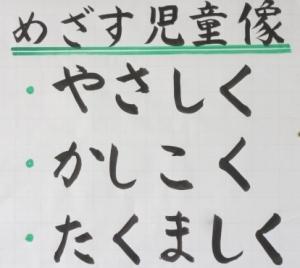 めざす児童像
・やさしく
・かしこく
・たくましく